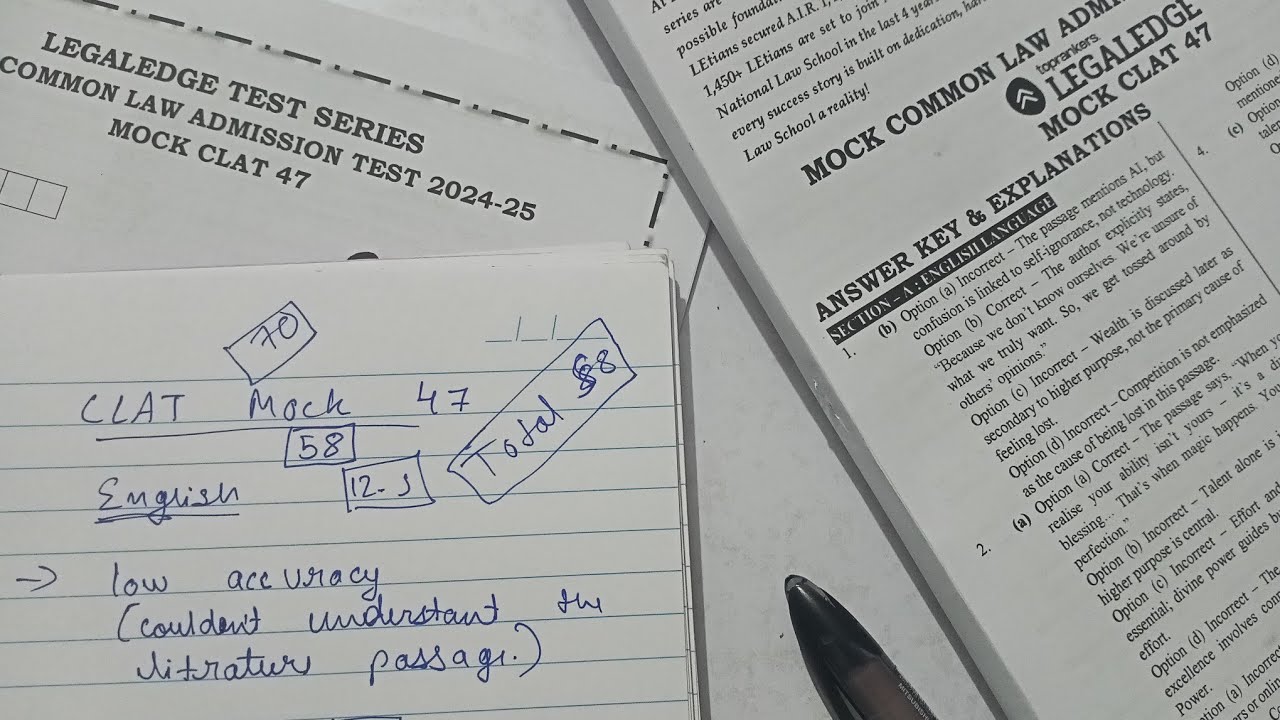 LEGALEDGE TEST SERIES
COMMON LAW ADMISSION TEST 2024-25
MOCK CLAT 47
70
CLAT Mock 47
58
Total 88
English
12.5
→ low accuracy
(couldent understant the
litrature passage.)
series are
possible foundation
LEtians secured A.I.R. 1,
1,450+ LEtians are set to join
National Law School in the last 4 years
every success story is built on dedication,
Law School a reality!
MOCK COMMON LAW ADMI
toprankers
LEGALEDGE
MOCK CLAT 47
ANSWER KEY & EXPLANATIONS
SECTION – A : ENGLISH LANGUAGE
1. (b) Option (a) Incorrect – The passage mentions AI, but
confusion is linked to self-ignorance, not technology.
Option (b) Correct – The author explicitly states,
"Because we don't know ourselves. We're unsure of
what we truly want. So, we get tossed around by
others' opinions."
Option (c) Incorrect – Wealth is discussed later as
secondary to higher purpose, not the primary cause of
feeling lost.
Option (d) Incorrect – Competition is not emphasized
as the cause of being lost in this passage.
2. (a) Option (a) Correct – The passage says, "When yo
realise your ability isn't yours – it's a di
blessing... That's when magic happens. You
perfection."
Option (b) Incorrect – Talent alone is
higher purpose is central.
Option (c) Incorrect – Effort and
essential; divine power guides
effort.
Option (d) Incorrect – The
excellence involves com
Power.
ption (a) Incorrect
rs or onlin
4.
Option (d)
mentione
(c) Option
tale